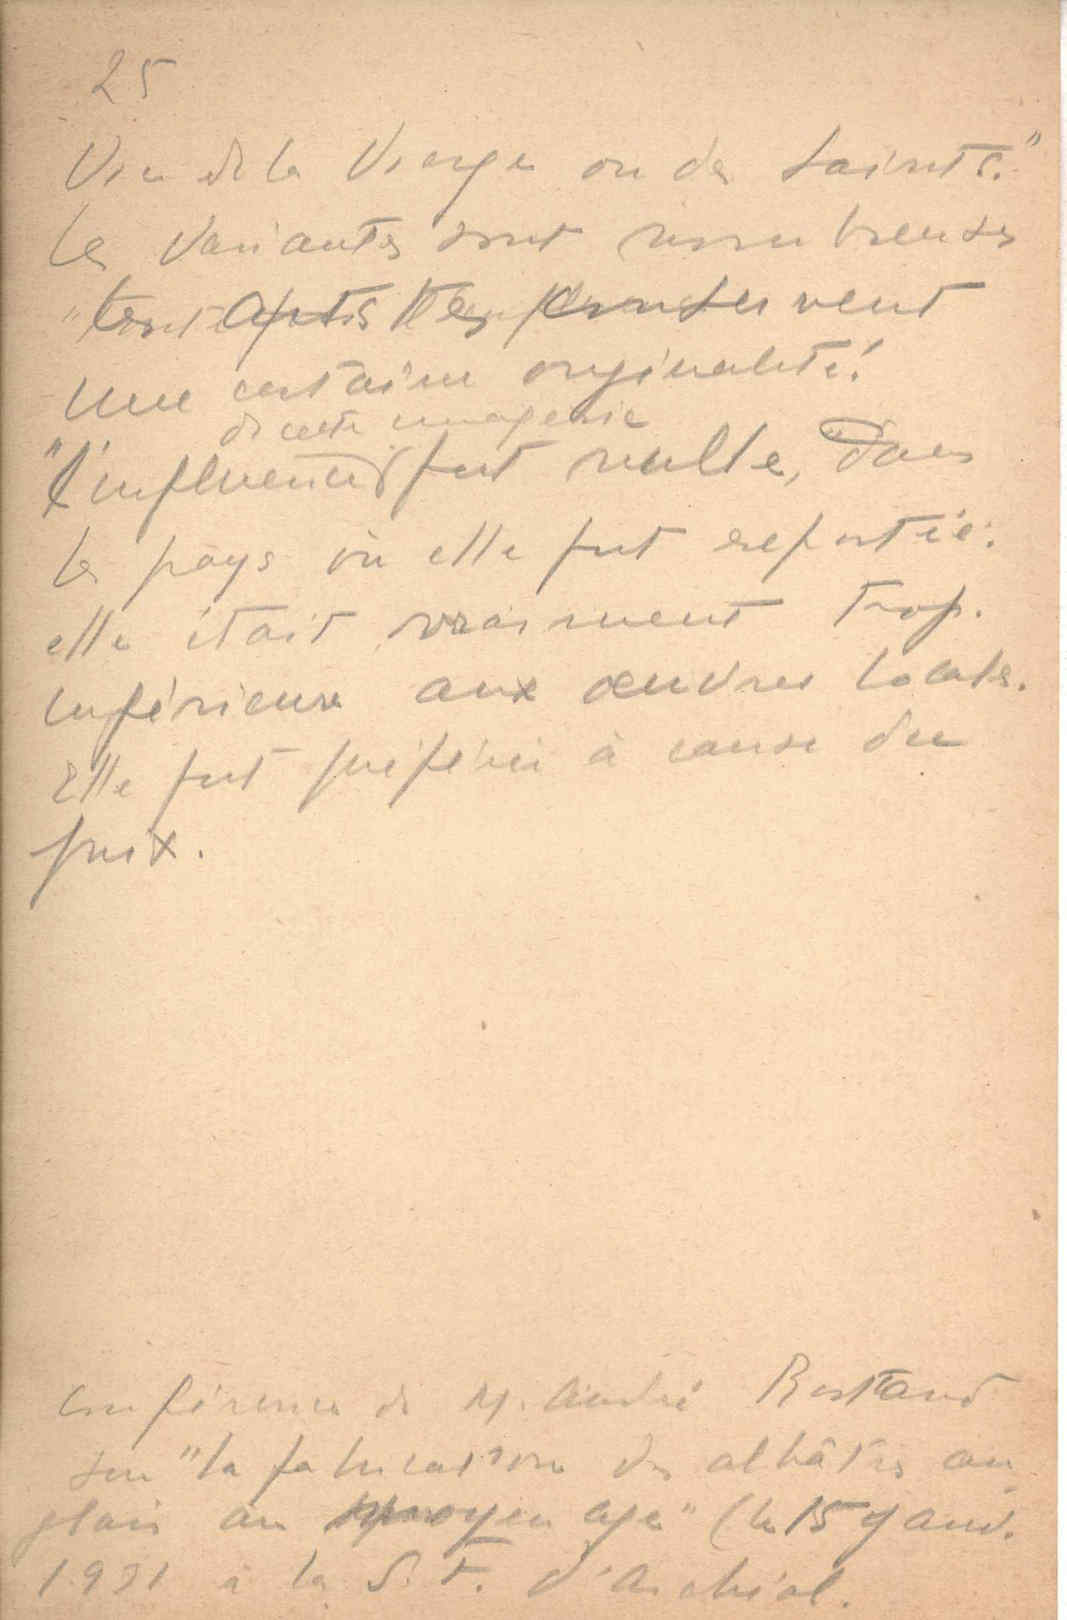 25
Vie de la Vierge ou des Saints."
Les variantes sont nombreuses
"tout conservent
une certaine originalité.
de cette imagerie
"l'influence fut nulle, dans
les pays où elle fut exportée:
elle était vraiment trop
inférieure aux œuvres locales.
Elle fut préférée à cause du
prix.
Conférence de M. André Rostand
sur "la fabrication des albâtres an
glais au moyen age" (le 15 janv.
1931 à la S. F. d'Archéol.